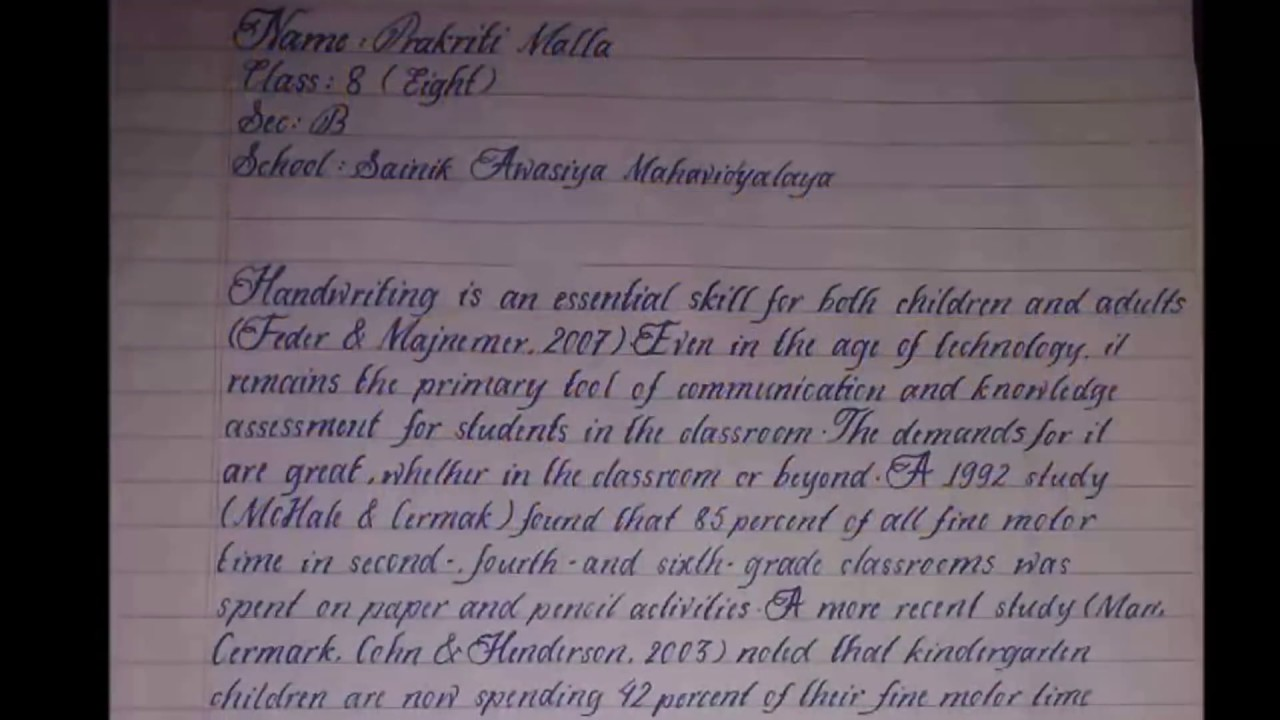 Name : Prakriti Malla
Class : 8 (Eight)
Sec : B
School : Sainik Awasiya Mahavidyalaya
Handwriting is an essential skill for both children and adults
(Feder & Majnemer, 2007) Even in the age of technology, it
remains the primary tool of communication and knowledge
assessment for students in the classroom. The demands for it
are great, whether in the classroom or beyond. A 1992 study
(McHale & Cermak) found that 85 percent of all fine motor
time in second-, fourth-and sixth-grade classrooms was
spent on paper and pencil activities. A more recent study (Marr,
Cermark, Cohn & Henderson, 2003) noted that kindergarten
children are now spending 42 percent of their fine motor time